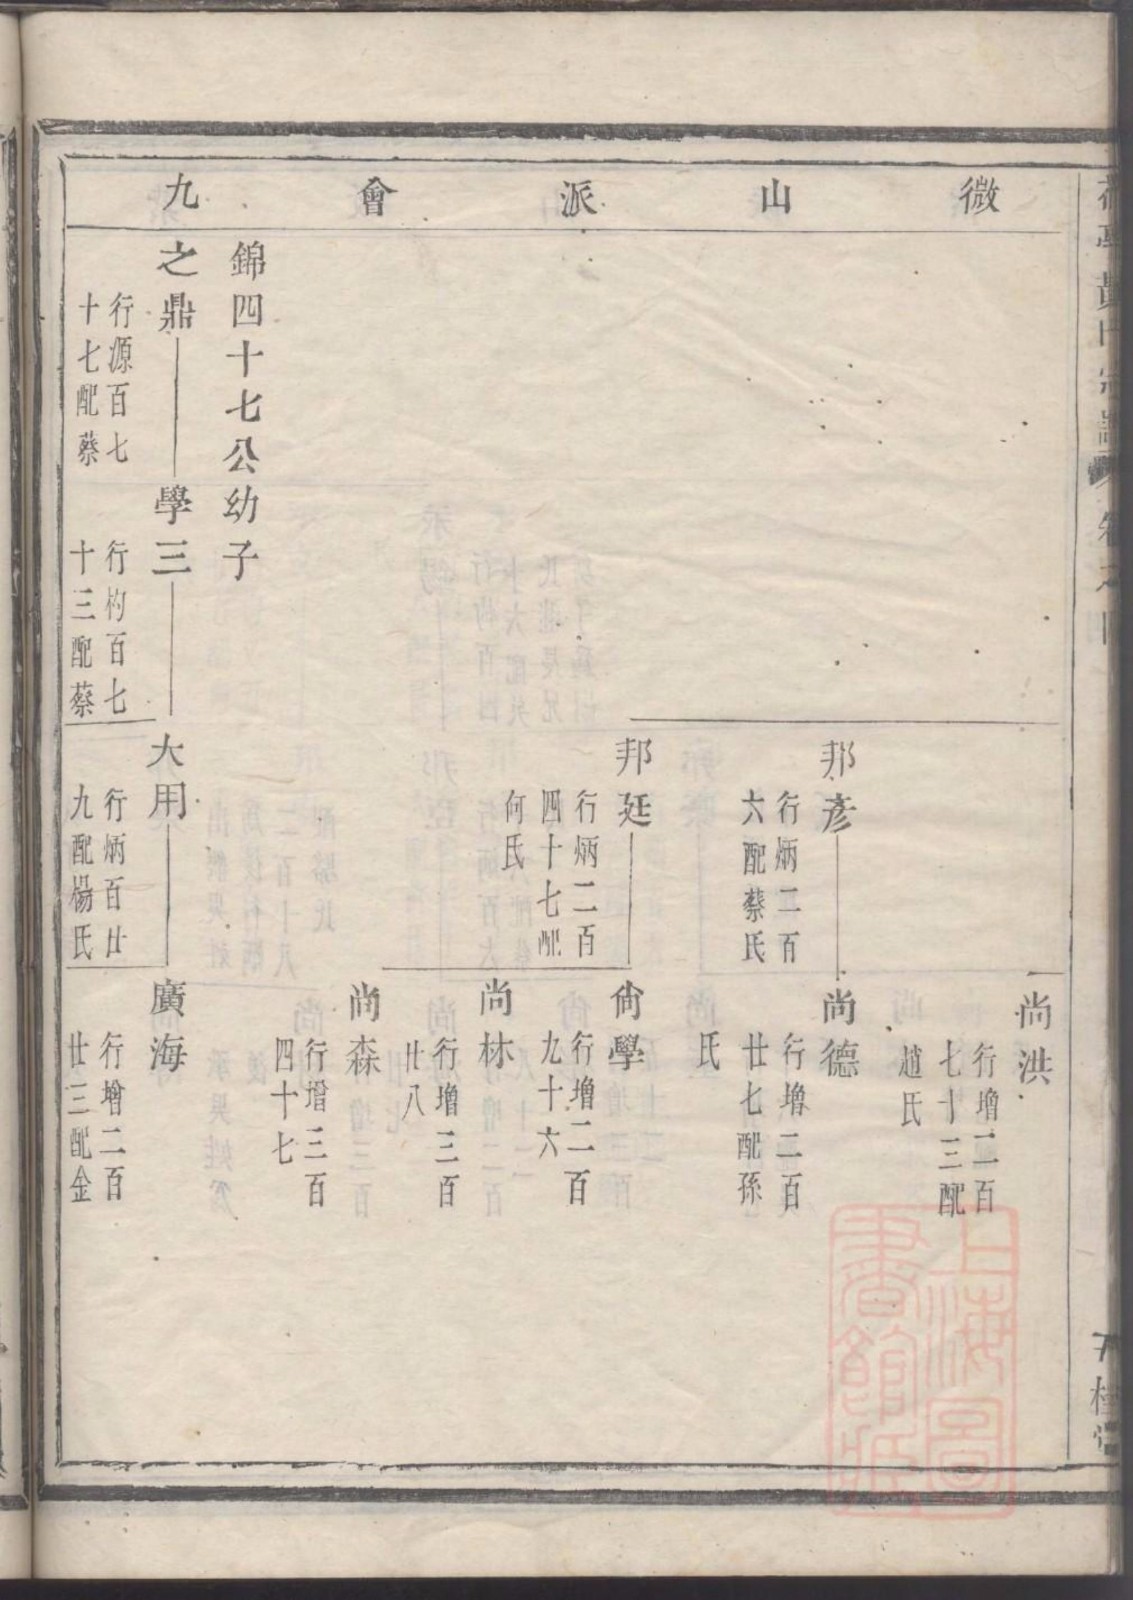 微山派會九
尚洪
行增二百
七十三配
趙氏
邦彥
行炳二百
六配蔡氏
尚德
行增二百
廿七配孫
氏
邦廷
行炳二百
四十七配
何氏
尙學
行增二百
九十六
尚林
行增三百
廿八
尚森
行增三百
四十七
錦四十七公幼子
之鼎
行源百七
十七配蔡
學三
行杓百七
十三配蔡
大用
行炳百廿
九配楊氏
廣海
行增二百
廿三配金
上海圖
書館藏